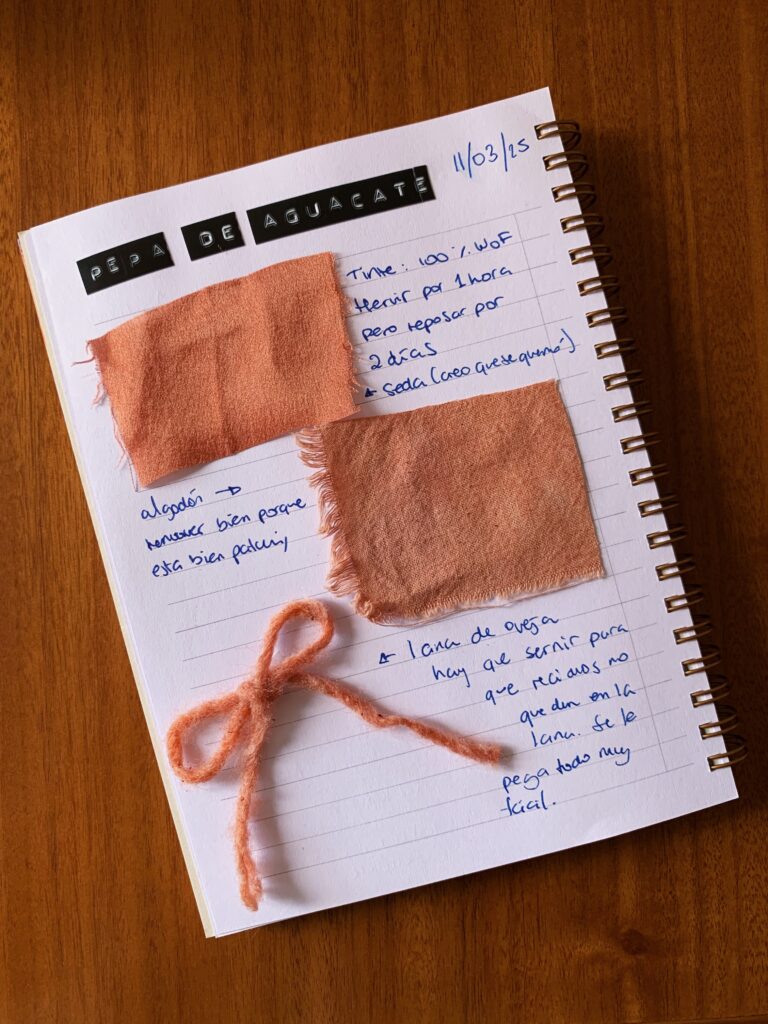 PEPA DE AGUACATE
11/03/25
Tinte: 100% WOF
Hervir por 1 hora
pero reposar por
2 días
← seda (creo que se quemó)
algodón →
remover bien porque
esta bien
← lana de oveja
hay que sernir para
que reciduos no
queden en la
lana. Se le
pega todo muy
fácil.